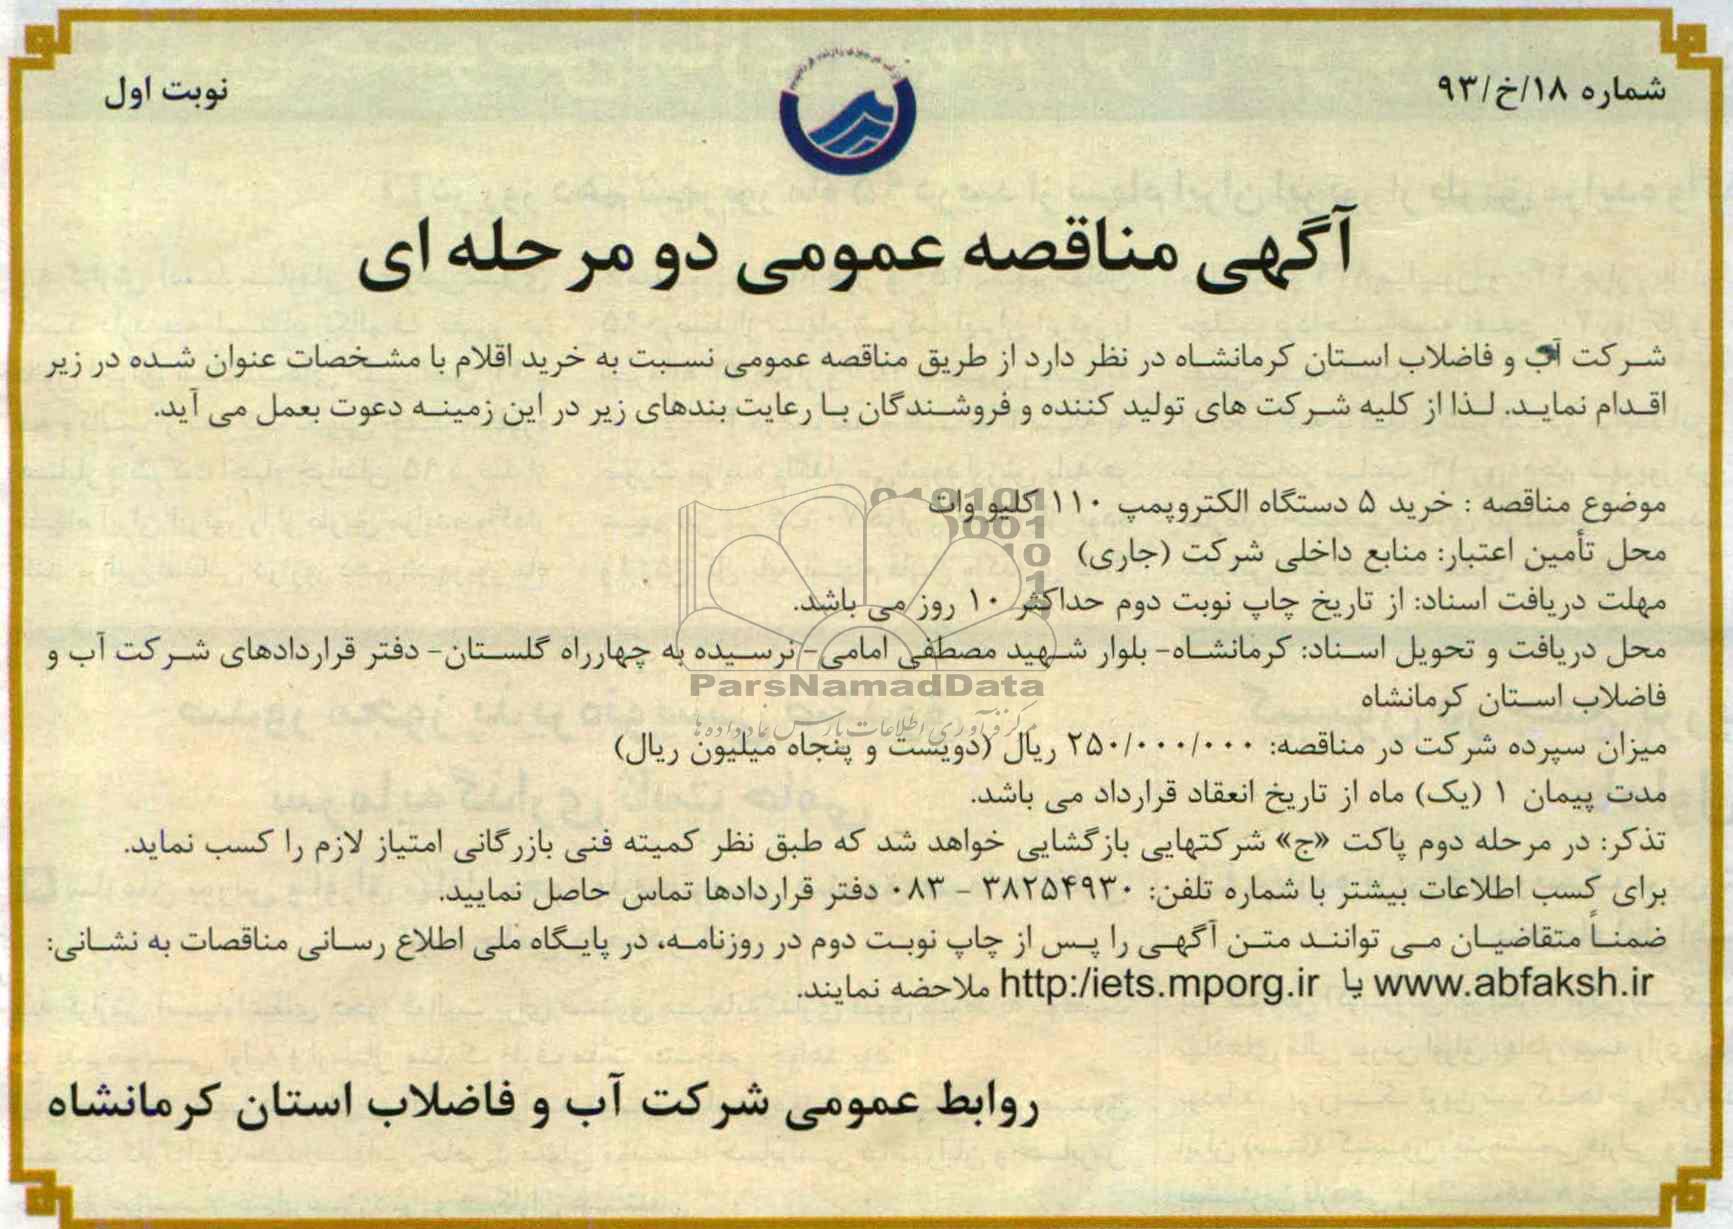 شماره ۱۸/خ/۹۳
نوبت اول
آگهی مناقصه عمومی دو مرحله ای
شرکت آب و فاضلاب استان کرمانشاه در نظر دارد از طریق مناقصه عمومی نسبت به خرید اقلام با مشخصات عنوان شده در زیر
اقدام نماید. لذا از کلیه شرکت های تولید کننده و فروشندگان با رعایت بندهای زیر در این زمینه دعوت بعمل می آید.
موضوع مناقصه : خرید ۵ دستگاه الکتروپمپ ۱۱۰ کلیو وات
محل تأمین اعتبار: منابع داخلی شرکت (جاری)
مهلت دریافت اسناد: از تاریخ چاپ نوبت دوم حداکثر ۱۰ روز می باشد.
محل دریافت و تحویل اسناد: کرمانشاه- بلوار شهید مصطفی امامی- نرسیده به چهارراه گلستان- دفتر قراردادهای شرکت آب و
فاضلاب استان کرمانشاه
ParsNamadData
مرکز فرآوری اطلاعات پارس نماد داده ها
میزان سپرده شرکت در مناقصه: ۲۵۰/۰۰۰/۰۰۰ ریال (دویست و پنجاه میلیون ریال)
مدت پیمان ۱ (یک) ماه از تاریخ انعقاد قرارداد می باشد.
تذکر: در مرحله دوم پاکت «ج» شرکتهایی بازگشایی خواهد شد که طبق نظر کمیته فنی بازرگانی امتیاز لازم را کسب نماید.
برای کسب اطلاعات بیشتر با شماره تلفن: ۳۸۲۵۴۹۳۰ - ۰۸۳ دفتر قراردادها تماس حاصل نمایید.
ضمناً متقاضیان می توانند متن آگهی را پس از چاپ نوبت دوم در روزنامه، در پایگاه ملی اطلاع رسانی مناقصات به نشانی:
www.abfaksh.ir یا http:/iets.mporg.ir ملاحضه نمایند.
روابط عمومی شرکت آب و فاضلاب استان کرمانشاه